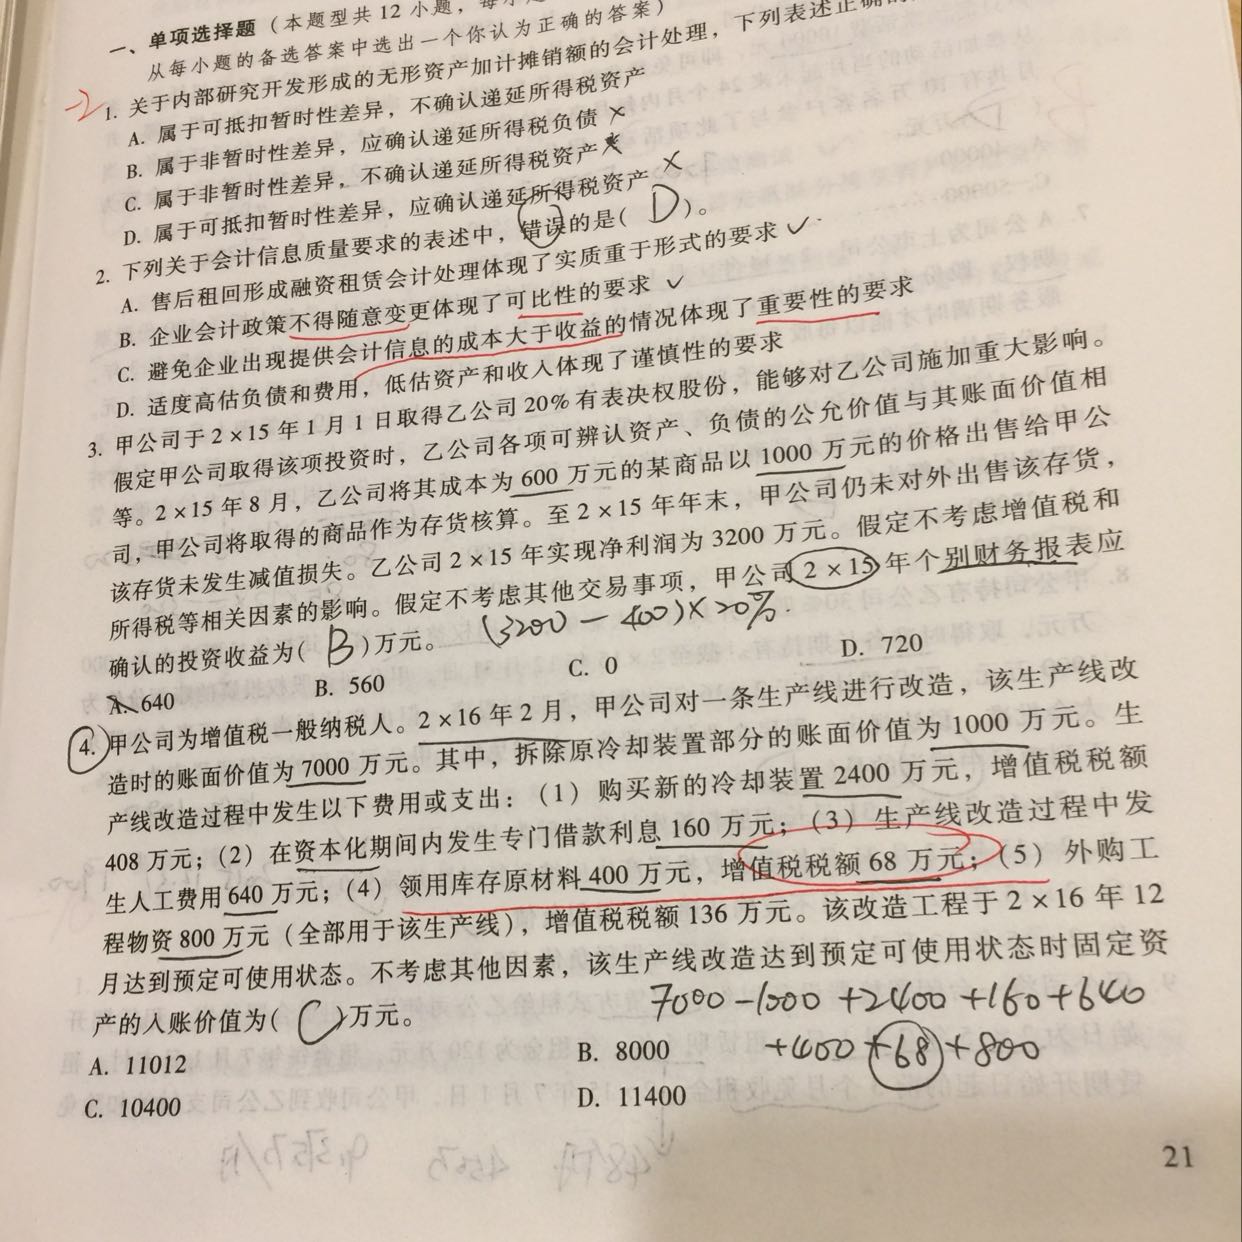 一、单项选择题（本题型共 12 小题，每小
从每小题的备选答案中选出一个你认为正确的答案）
-2
1. 关于内部研究开发形成的无形资产加计摊销额的会计处理，下列表述正确的
A. 属于可抵扣暂时性差异，不确认递延所得税资产
B. 属于非暂时性差异，应确认递延所得税负债 ×
C. 属于非暂时性差异，不确认递延所得税资产 ×
D. 属于可抵扣暂时性差异，应确认递延所得税资产 ×
2. 下列关于会计信息质量要求的表述中，错误的是( D )。
A. 售后租回形成融资租赁会计处理体现了实质重于形式的要求 ✓
B. 企业会计政策不得随意变更体现了可比性的要求 ✓
C. 避免企业出现提供会计信息的成本大于收益的情况体现了重要性的要求
D. 适度高估负债和费用，低估资产和收入体现了谨慎性的要求
3. 甲公司于 2×15 年 1 月 1 日取得乙公司 20% 有表决权股份，能够对乙公司施加重大影响。
假定甲公司取得该项投资时，乙公司各项可辨认资产、负债的公允价值与其账面价值相
等。2×15 年 8 月，乙公司将其成本为 600 万元的某商品以 1000 万元的价格出售给甲公
司，甲公司将取得的商品作为存货核算。至 2×15 年年末，甲公司仍未对外出售该存货，
该存货未发生减值损失。乙公司 2×15 年实现净利润为 3200 万元。假定不考虑增值税和
所得税等相关因素的影响。假定不考虑其他交易事项，甲公司 2×15 年个别财务报表应
确认的投资收益为( B )万元。
(3200 - 400)×20%.
A. 640 B. 560 C. 0 D. 720
4. 甲公司为增值税一般纳税人。2×16 年 2 月，甲公司对一条生产线进行改造，该生产线改
造时的账面价值为 7000 万元。其中，拆除原冷却装置部分的账面价值为 1000 万元。生
产线改造过程中发生以下费用或支出：（1）购买新的冷却装置 2400 万元，增值税税额
408 万元；（2）在资本化期间内发生专门借款利息 160 万元；（3）生产线改造过程中发
生人工费用 640 万元；（4）领用库存原材料 400 万元，增值税税额 68 万元；（5）外购工
程物资 800 万元（全部用于该生产线），增值税税额 136 万元。该改造工程于 2×16 年 12
月达到预定可使用状态。不考虑其他因素，该生产线改造达到预定可使用状态时固定资
产的入账价值为( C )万元。
7000 -1000 +2400 +160+640
+400 +68 +800
A. 11012 B. 8000
C. 10400 D. 11400
21